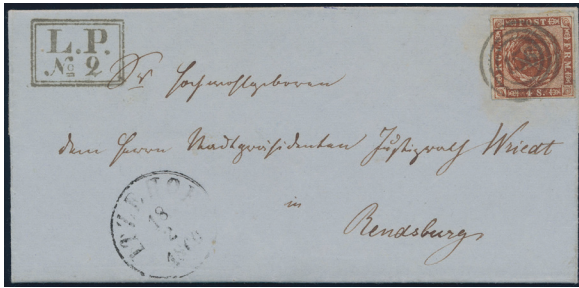 L.P.
No 2
POST
FRM
4 S
Sr Hochwohlgeboren
dem Herrn Stadtpräsidenten Justizrath Wriedt
in
Rendsburg
18
2